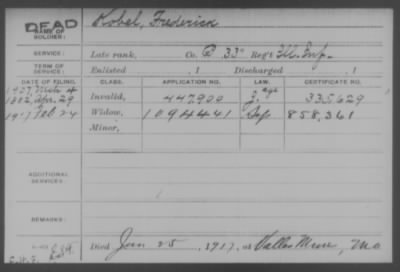 DEAD
NAME OF SOLDIER: Robel, Frederick
SERVICE: Late rank, Co. B 33" Reg't Ill. Inf.
TERM OF SERVICE: Enlisted , 1 Discharged , 1
DATE OF FILING. CLASS. APPLICATION NO. LAW. CERTIFICATE NO.
1907, Mch 4 age
1882, Apr. 29 Invalid, 447,900 335629
1917 Feb 24 Widow, 1094441 Sep 858,361
Minor,
ADDITIONAL SERVICES:
REMARKS:
Died Jan 25, 1917, at Mo